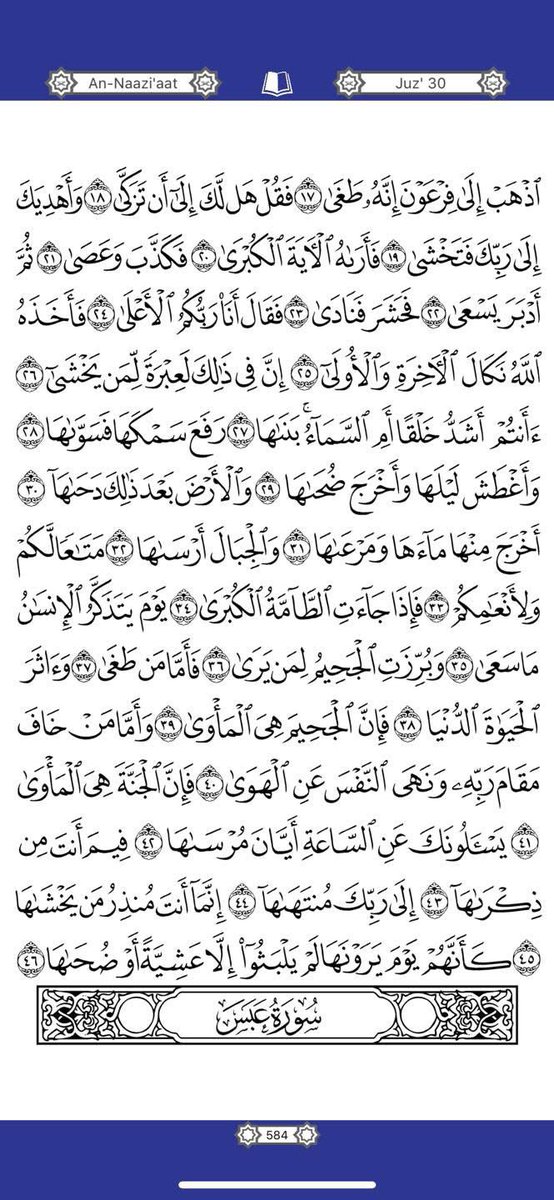 An-Naazi'aat
Juz' 30
ٱذۡهَبۡ إِلَىٰ فِرۡعَوۡنَ إِنَّهُۥ طَغَىٰ ١٧ فَقُلۡ هَل لَّكَ إِلَىٰٓ أَن تَزَكَّىٰ ١٨ وَأَهۡدِيَكَ
إِلَىٰ رَبِّكَ فَتَخۡشَىٰ ١٩ فَأَرَىٰهُ ٱلۡأٓيَةَ ٱلۡكُبۡرَىٰ ٢٠ فَكَذَّبَ وَعَصَىٰ ٢١ ثُمَّ
أَدۡبَرَ يَسۡعَىٰ ٢٢ فَحَشَرَ فَنَادَىٰ ٢٣ فَقَالَ أَنَا۠ رَبُّكُمُ ٱلۡأَعۡلَىٰ ٢٤ فَأَخَذَهُ
ٱللَّهُ نَكَالَ ٱلۡأٓخِرَةِ وَٱلۡأُولَىٰٓ ٢٥ إِنَّ فِي ذَٰلِكَ لَعِبۡرَةٗ لِّمَن يَخۡشَىٰٓ ٢٦
ءَأَنتُمۡ أَشَدُّ خَلۡقًا أَمِ ٱلسَّمَآءُۚ بَنَىٰهَا ٢٧ رَفَعَ سَمۡكَهَا فَسَوَّىٰهَا ٢٨
وَأَغۡطَشَ لَيۡلَهَا وَأَخۡرَجَ ضُحَىٰهَا ٢٩ وَٱلۡأَرۡضَ بَعۡدَ ذَٰلِكَ دَحَىٰهَآ ٣٠
أَخۡرَجَ مِنۡهَا مَآءَهَا وَمَرۡعَىٰهَا ٣١ وَٱلۡجِبَالَ أَرۡسَىٰهَا ٣٢ مَتَٰعٗا لَّكُمۡ
وَلِأَنۡعَٰمِكُمۡ ٣٣ فَإِذَا جَآءَتِ ٱلطَّآمَّةُ ٱلۡكُبۡرَىٰ ٣٤ يَوۡمَ يَتَذَكَّرُ ٱلۡإِنسَٰنُ
مَا سَعَىٰ ٣٥ وَبُرِّزَتِ ٱلۡجَحِيمُ لِمَن يَرَىٰ ٣٦ فَأَمَّا مَن طَغَىٰ ٣٧ وَءَاثَرَ
ٱلۡحَيَوٰةَ ٱلدُّنۡيَا ٣٨ فَإِنَّ ٱلۡجَحِيمَ هِيَ ٱلۡمَأۡوَىٰ ٣٩ وَأَمَّا مَنۡ خَافَ
مَقَامَ رَبِّهِۦ وَنَهَى ٱلنَّفۡسَ عَنِ ٱلۡهَوَىٰ ٤٠ فَإِنَّ ٱلۡجَنَّةَ هِيَ ٱلۡمَأۡوَىٰ
٤١ يَسۡـَٔلُونَكَ عَنِ ٱلسَّاعَةِ أَيَّانَ مُرۡسَىٰهَا ٤٢ فِيمَ أَنتَ مِن
ذِكۡرَىٰهَآ ٤٣ إِلَىٰ رَبِّكَ مُنتَهَىٰهَآ ٤٤ إِنَّمَآ أَنتَ مُنذِرُ مَن يَخۡشَىٰهَا
٤٥ كَأَنَّهُمۡ يَوۡمَ يَرَوۡنَهَا لَمۡ يَلۡبَثُوٓاْ إِلَّا عَشِيَّةً أَوۡ ضُحَىٰهَا ٤٦
سُورَةُ عَبَسَ
584